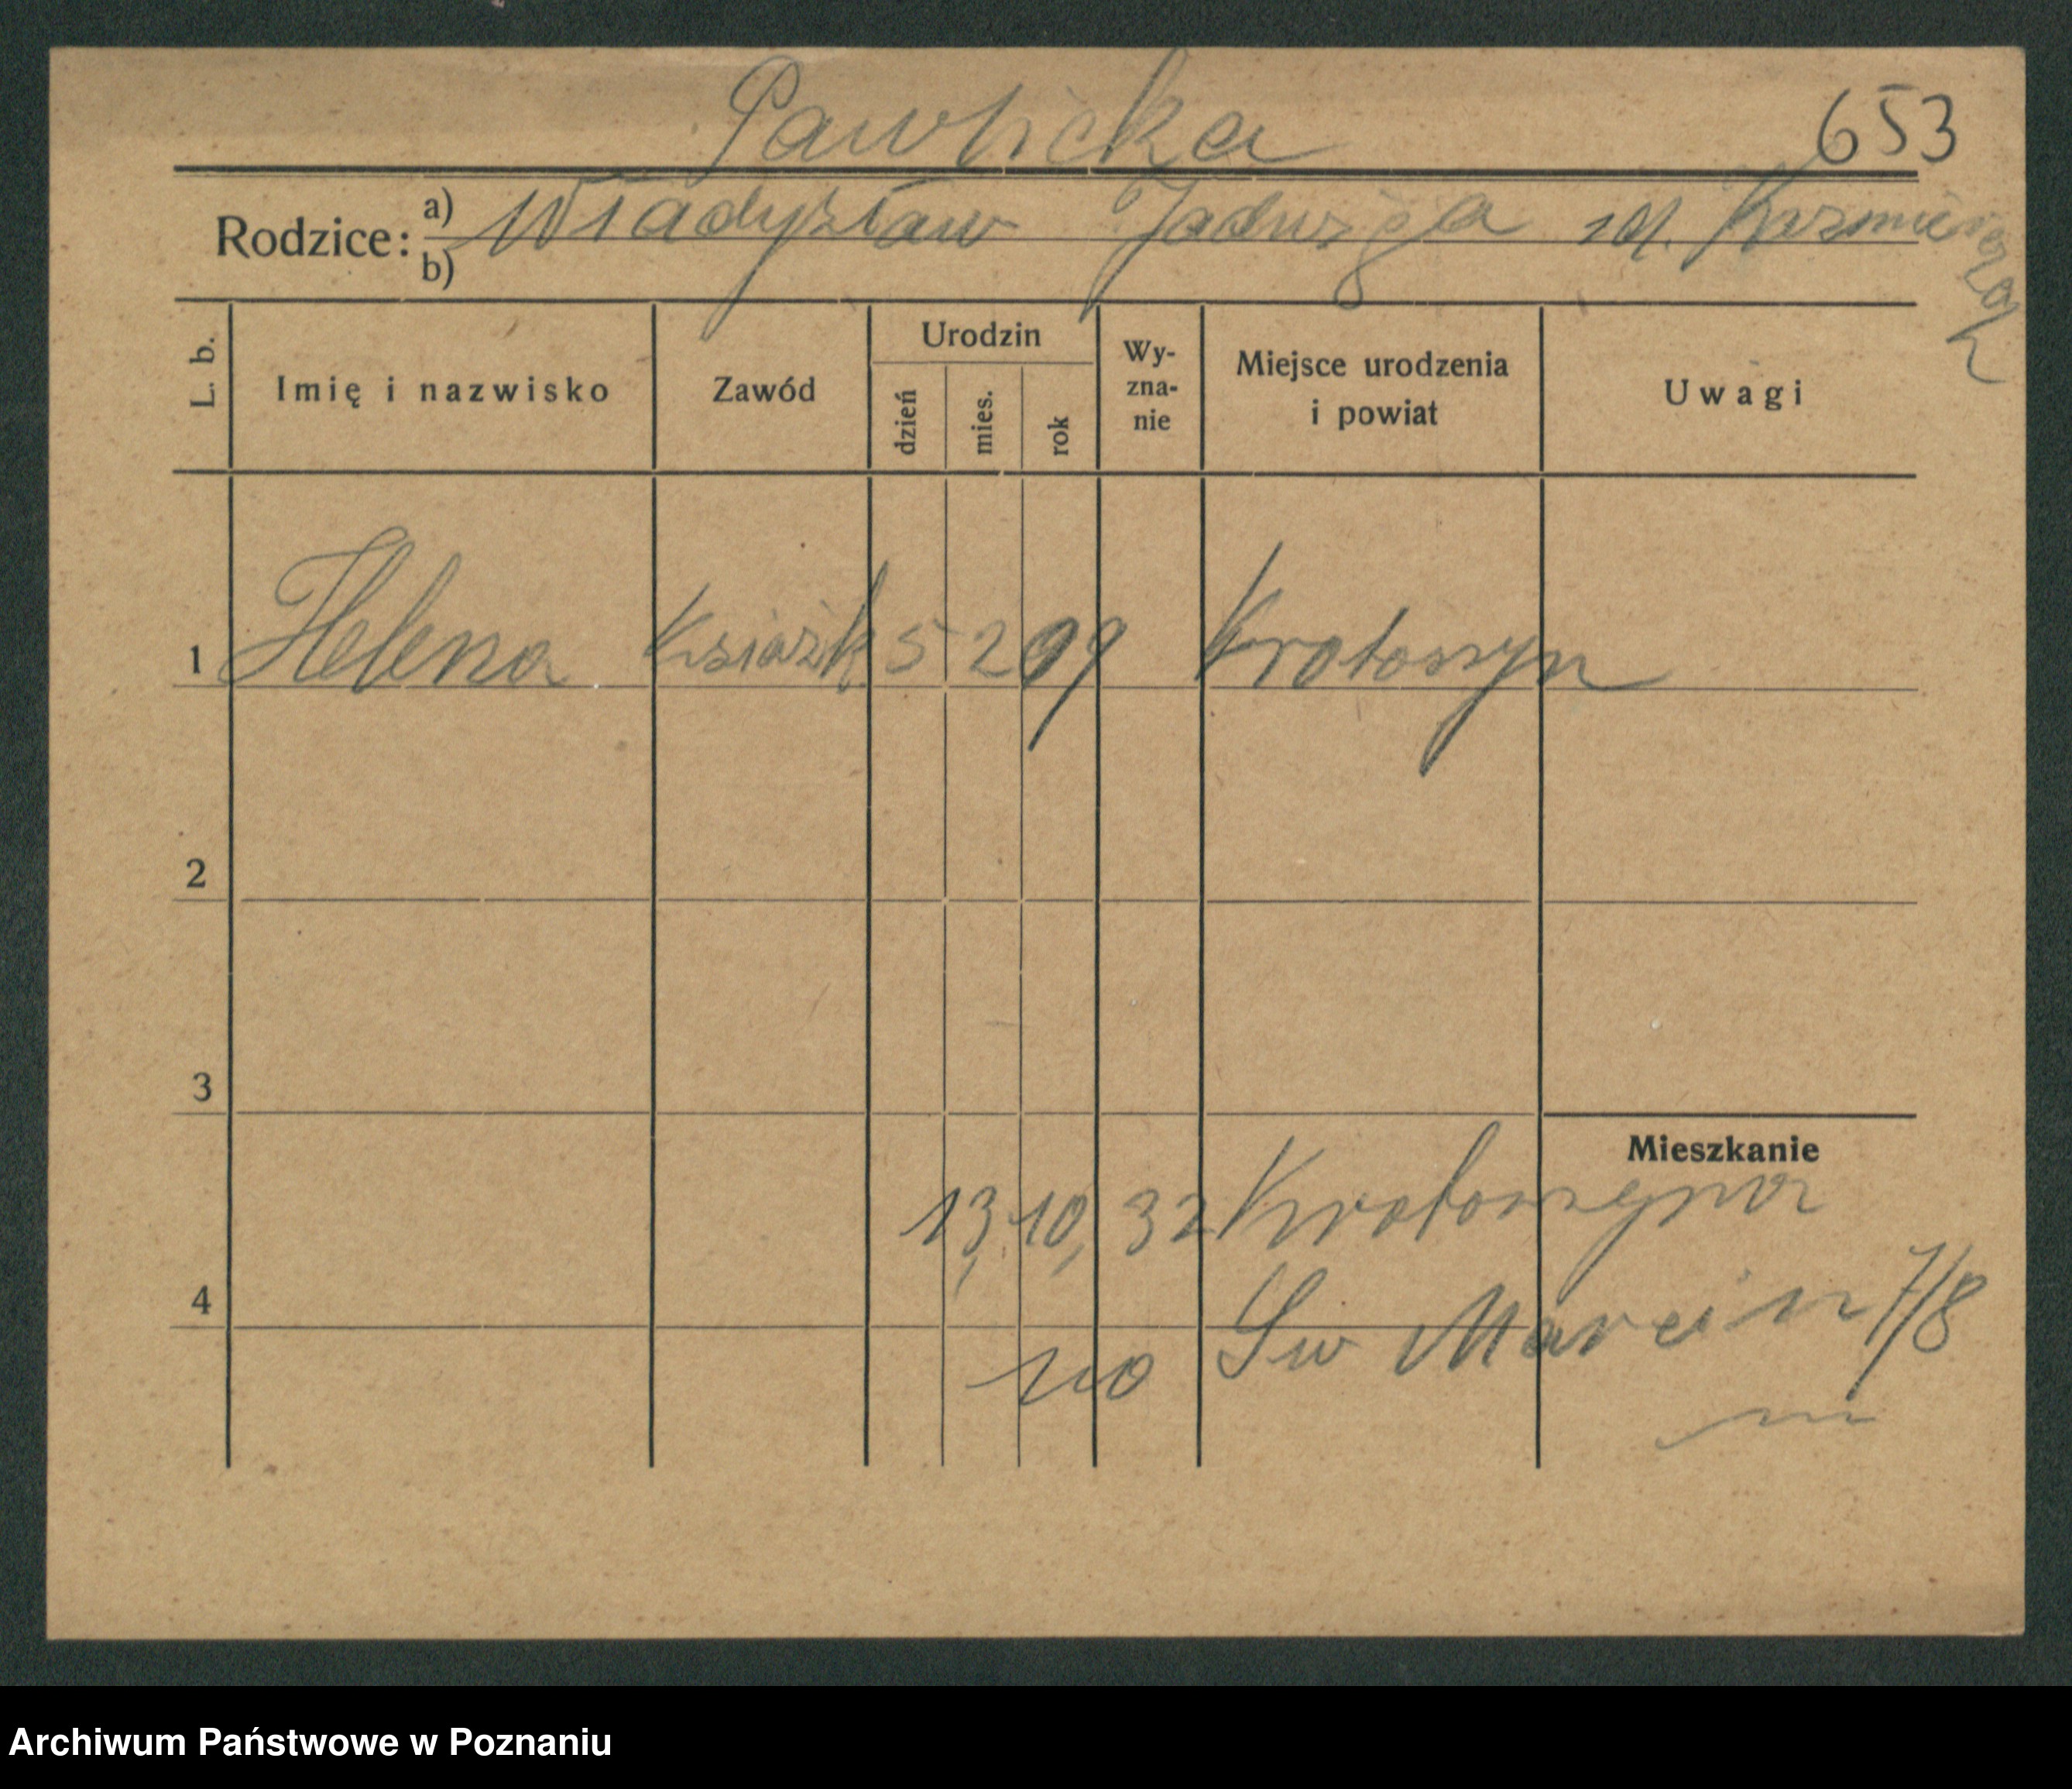 Pawlicka 653
Rodzice: a) Władysław Jadwiga Kazmierczak
b)
L. b. Imię i nazwisko Zawód Urodzin dzień mies. rok Wyzna-nie Miejsce urodzenia i powiat Uwagi
1 Helena Książk 5 2 09 Krotoszyn
2
3
Mieszkanie
13, 10, 32 Krotoszyna
4
Sw Marcin 7/8
Archiwum Państwowe w Poznaniu